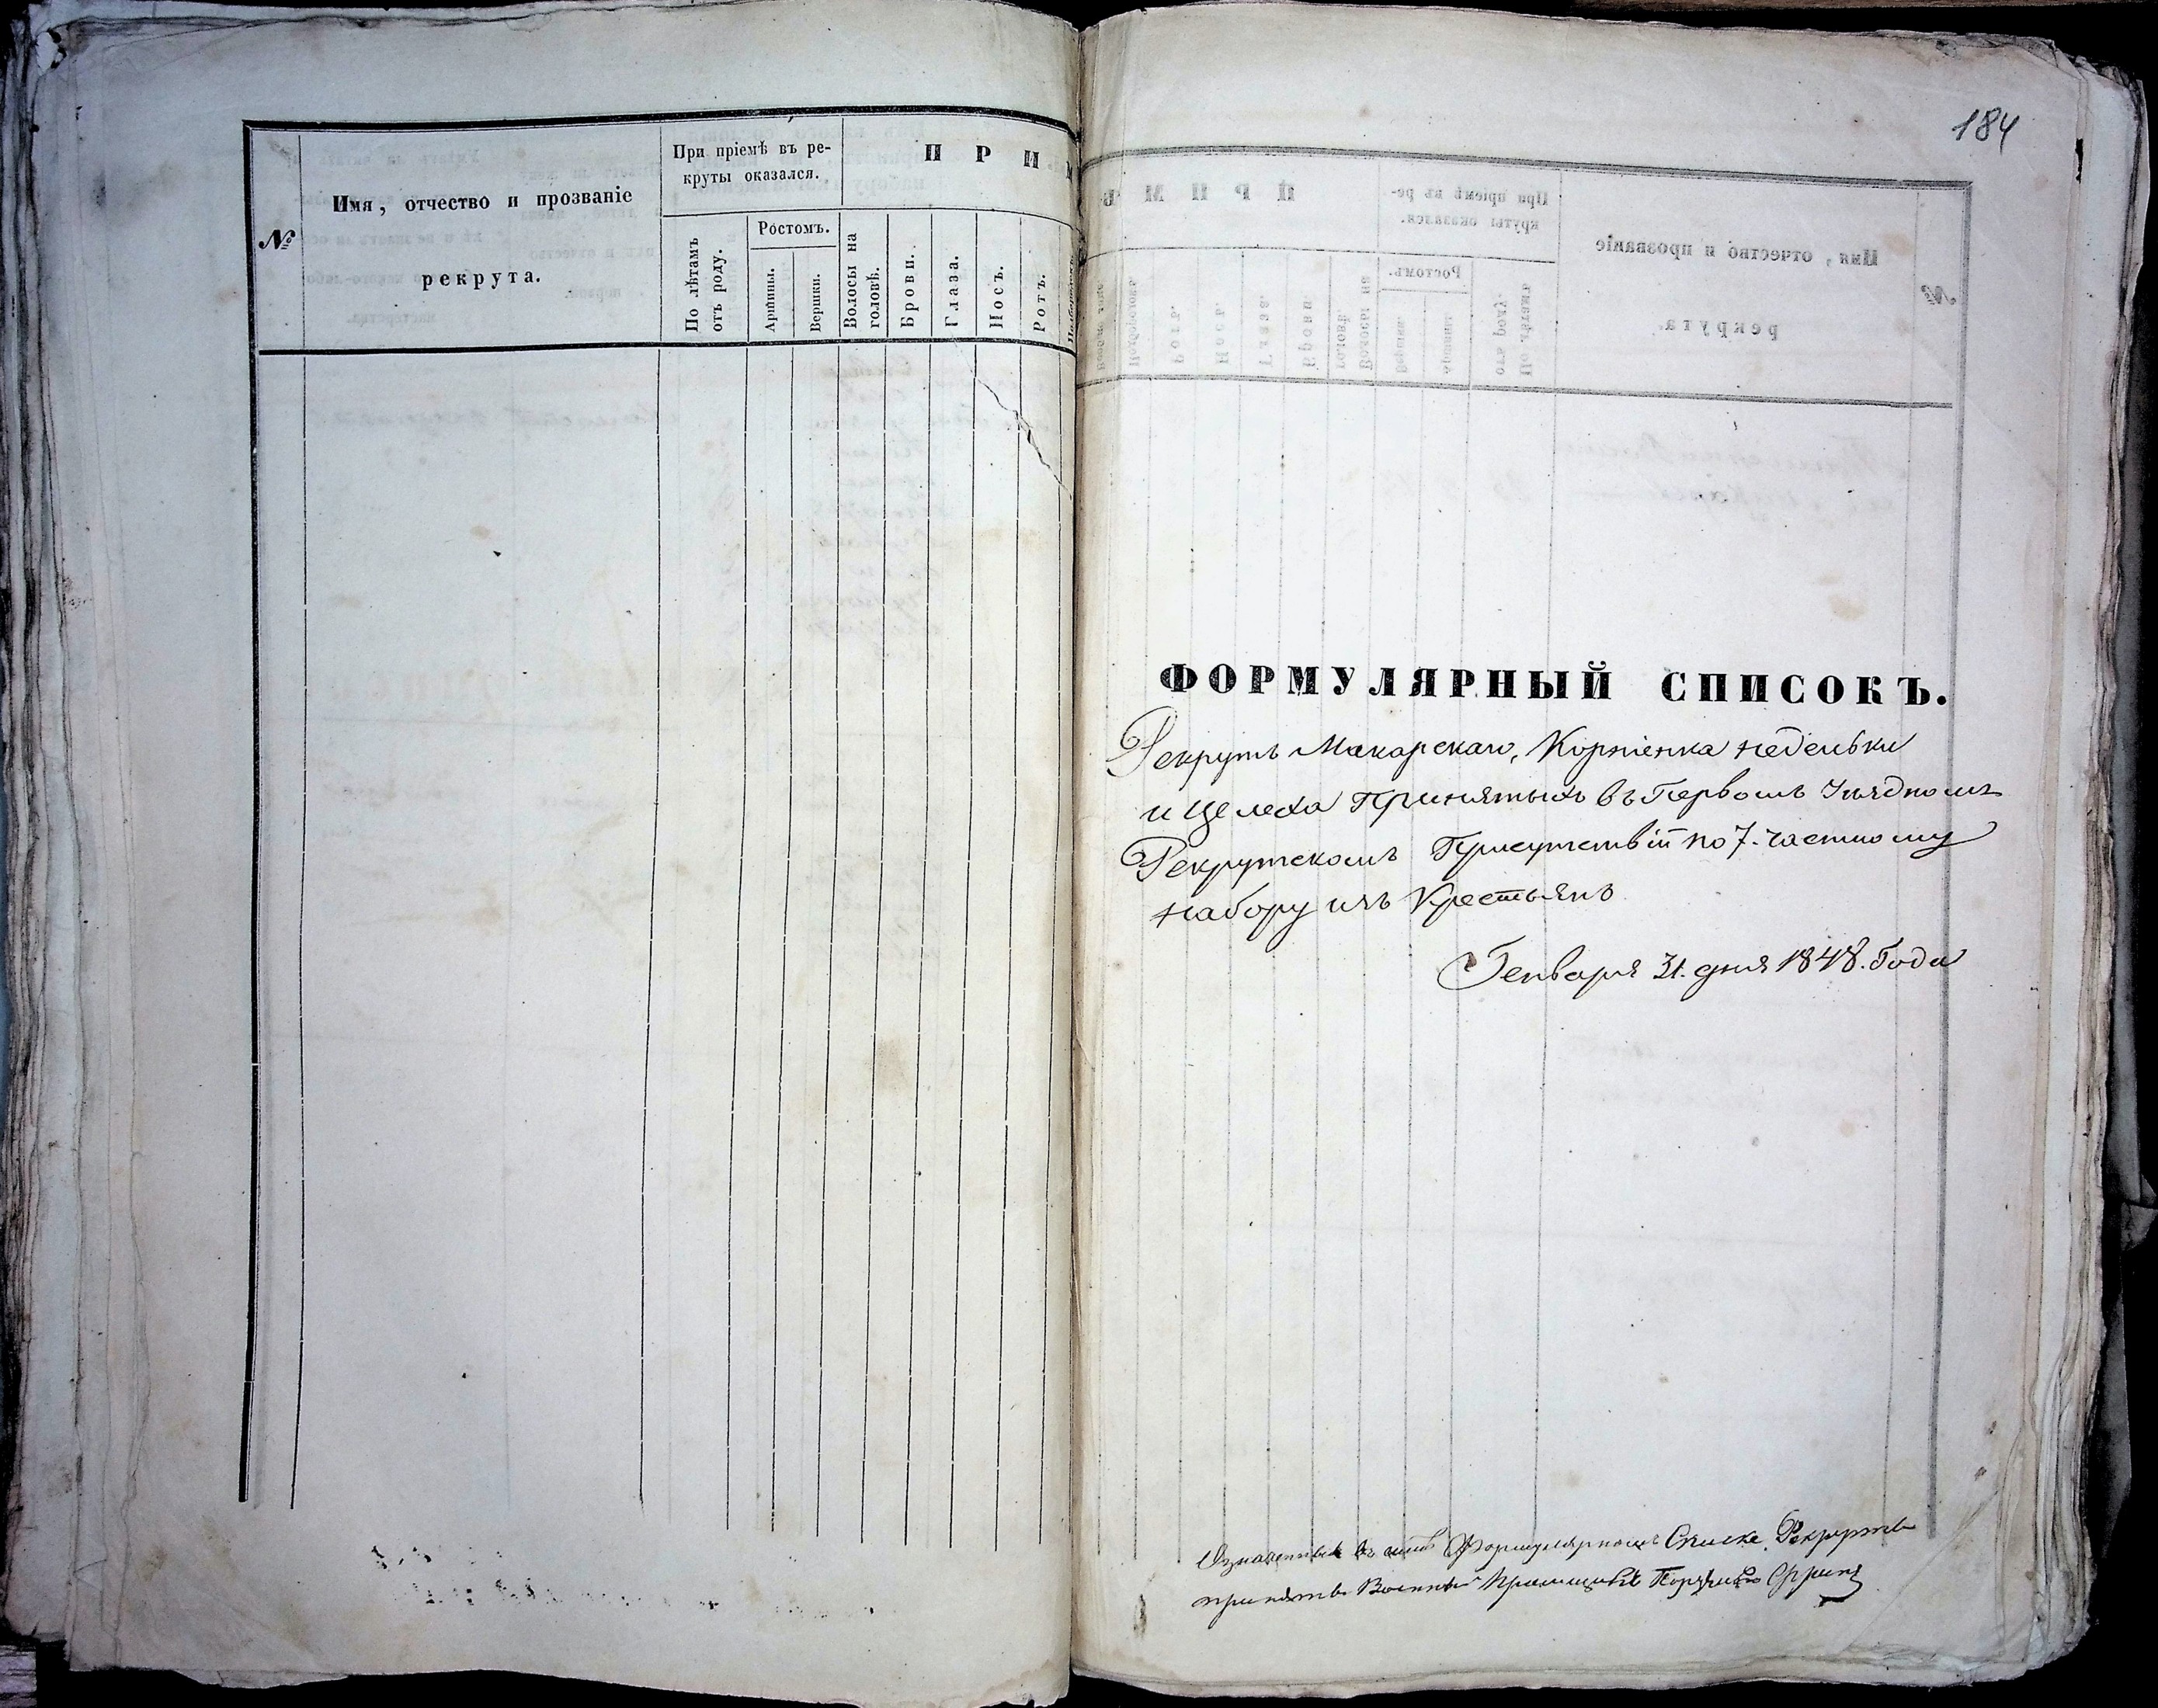 №
Имя, отчество и прозваніе
рекрута.
При пріемѣ въ ре-
круты оказался.
По лѣтамъ
отъ роду.
Ростомъ.
Аршины.
Вершки.
П Р И М
Волосы на
головѣ.
Брови.
Глаза.
Носъ.
Ротъ.
184
ФОРМУЛЯРНЫЙ СПИСОКЪ.
Рекрутъ Макарскаго, Корніенка Недельки
и Целеха Принятыхъ въ Первомъ Уѣздномъ
Рекрутскомъ Присутствіи по 7. частному
набору изъ Крестьянъ
Генваря 31. дня 1848. Года
въ Формулярномъ Списке Рекрутъ
принялъ Военный Пріемщикъ